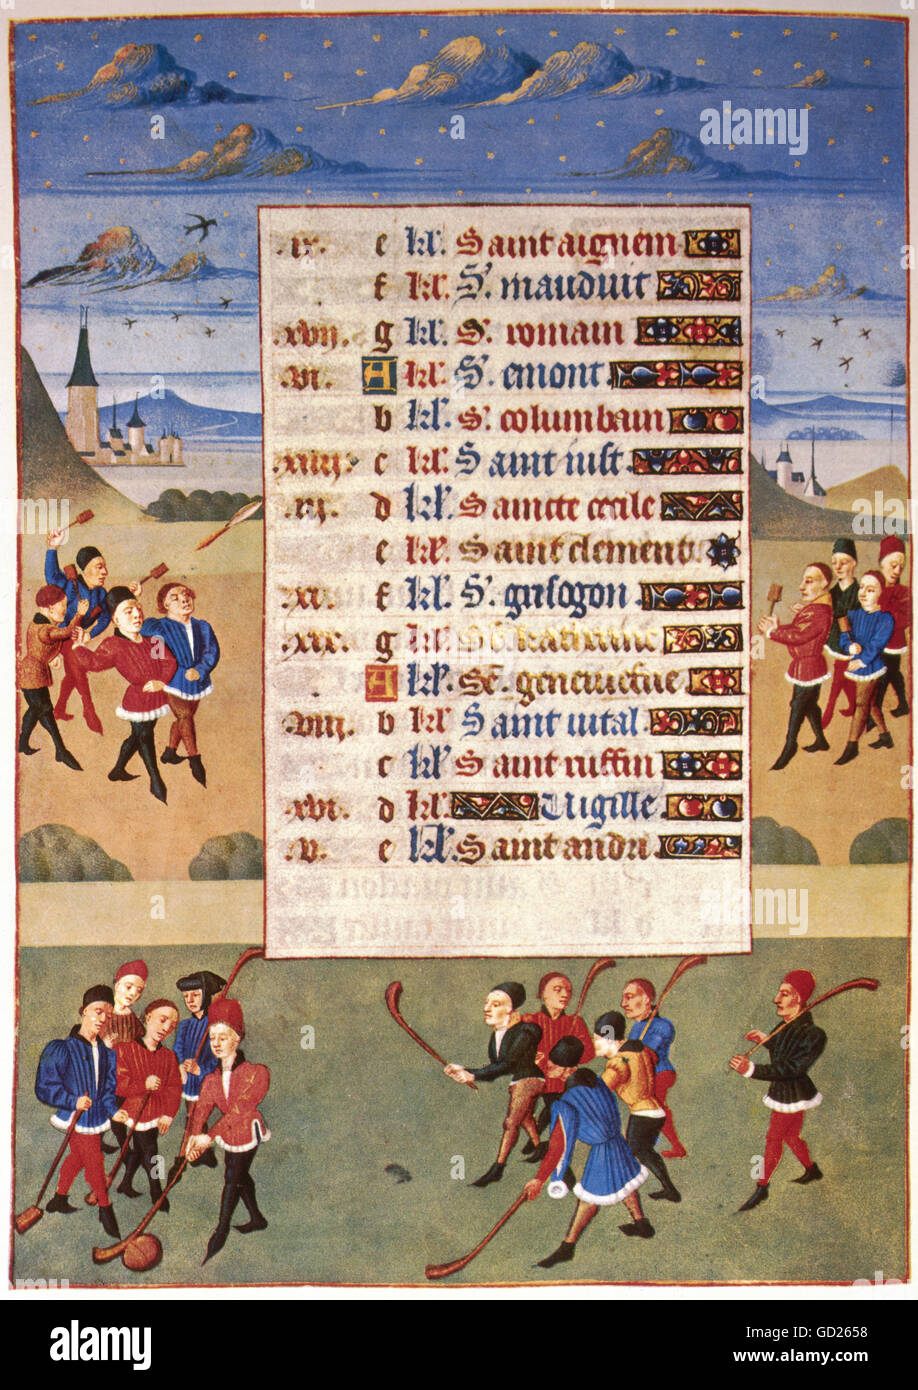 .ix. e kł. Saint aignem
f kł. S'. mauduit
.xvij. g kł. S'. romain
.vi. A kł. S'. emont
b kł. S'. columbain
.xiiij. c kł. Saint iust
.iij. d kł. Saincte cecile
e kł. Saint clement
.xi. f kł. S'. grisogon
.xix. g kł. Se. katherine
A kł. Se. geneviefue
.viij. b kł. Saint vital
c kł. Saint ruffin
.xvi. d kł. Vigille
.v. e kł. Saint andri
alamy
alamy stock photo
alamy
Image ID: GD2658
www.alamy.com